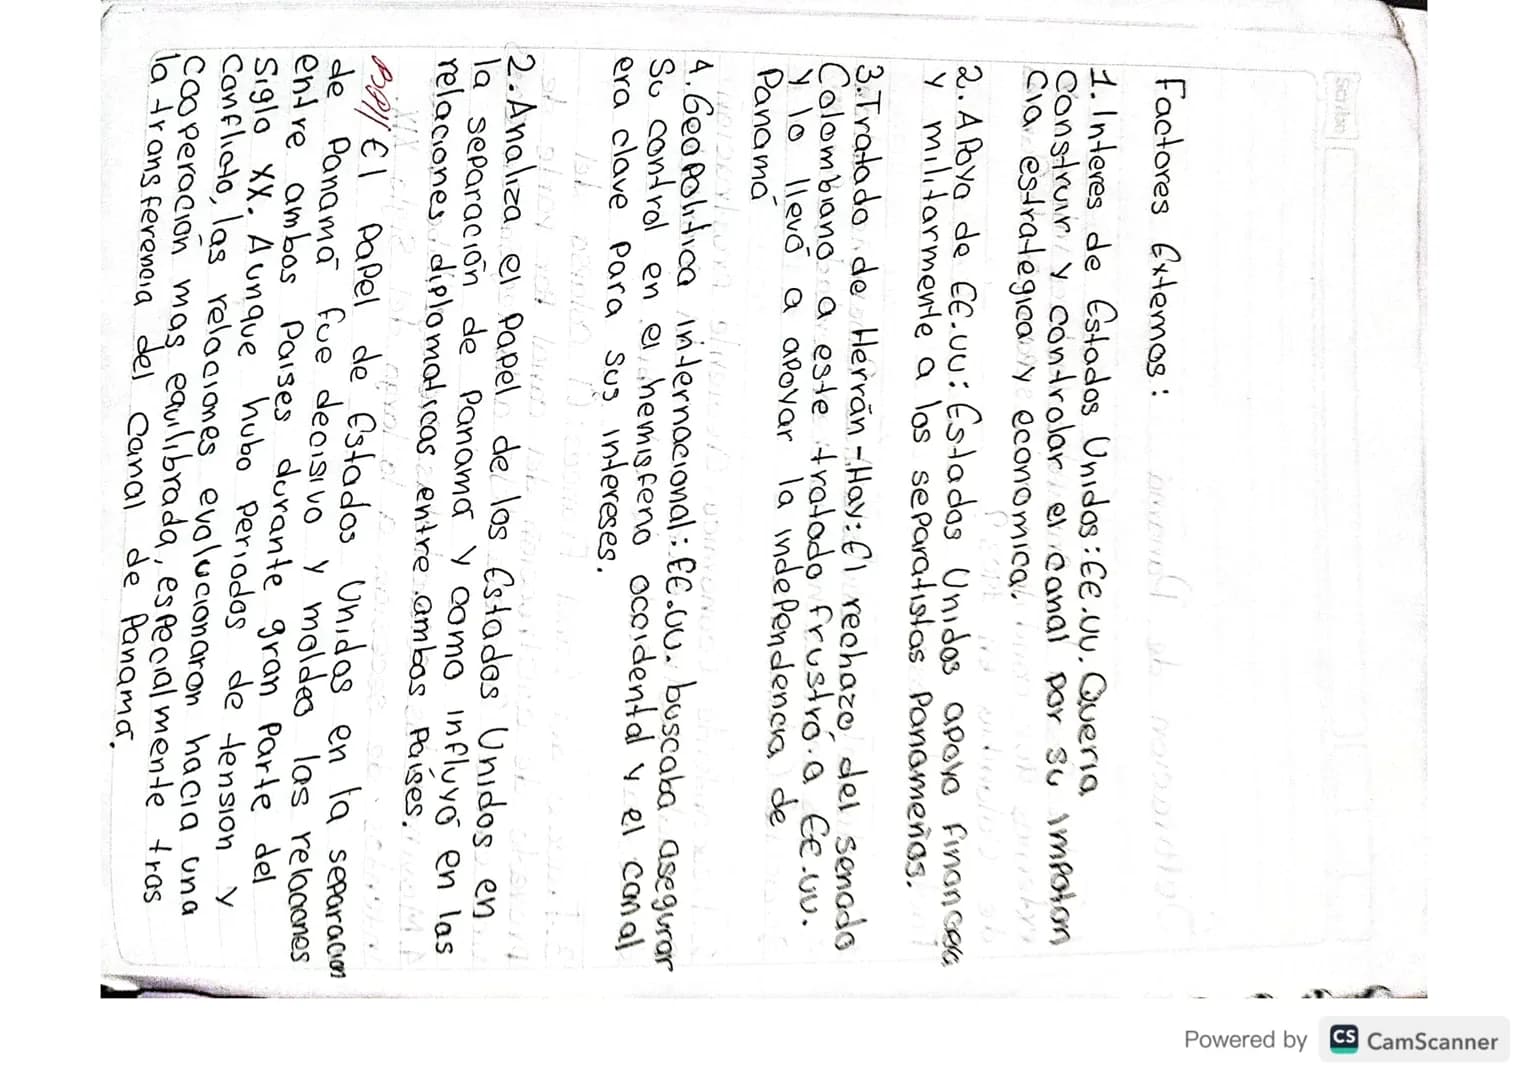 Scribe
Factores Externos:
1. Interes de Estados Unidos: EE.UU. Queria
Construir y controlar el canal por su impotan
cia estrategica y economica.
2. Apoyo de EE.UU: Estados Unidos apoyo financera
y militarmente a los separatistas Panameños.
3. Tratado de Herrán-Hay: El rechazo del senado
Colombiano a este tratado frustró a EE.UU.
y lo llevó a apoyar la independencia de
Panamá
4. Geopolitica internacional: EE.UU. buscaba asegurar
Su control en el hemisferio occidental y el canal
era clave para sus intereses.
2. Analiza el papel de los Estados Unidos en
la separación de Panamá y como influyó en las
relaciones diplomaticas entre ambos Países.
El papel de Estados Unidos en la separacion
de Panamá fue decisivo y moldeo las relaciones
entre ambos Paises durante gran Parte del
Siglo XX. Aunque hubo Periodos de tension y
Conflicto, las relaciones evolucionaron hacia una
Cooperación mas equilibrada, especialmente tras
la transferencia del Canal de Panamá.
Powered by CS CamScanner